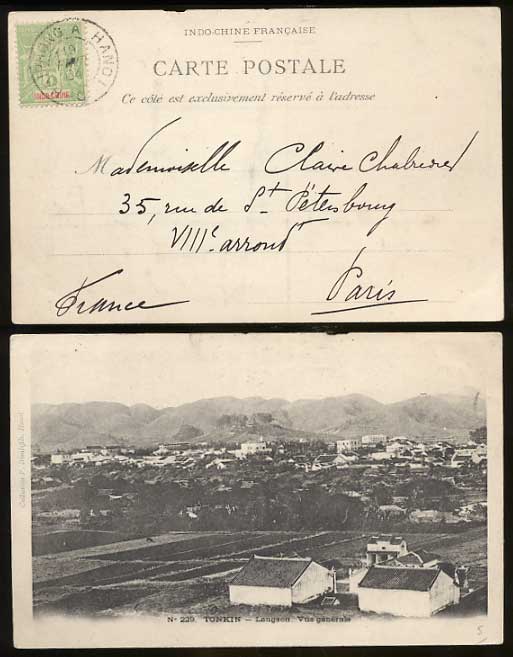 INDO-CHINE FRANÇAISE
CARTE POSTALE
Ce côté est exclusivement réservé à l'adresse
A HANOI
INDO-CHINE
Mademoiselle Claire
35, rue de St Pétersbourg
VIIIe arrondt
Paris
France
Collection P. Dieulefils, Hanoi
No 229. TONKIN — Langson. Vue générale
5